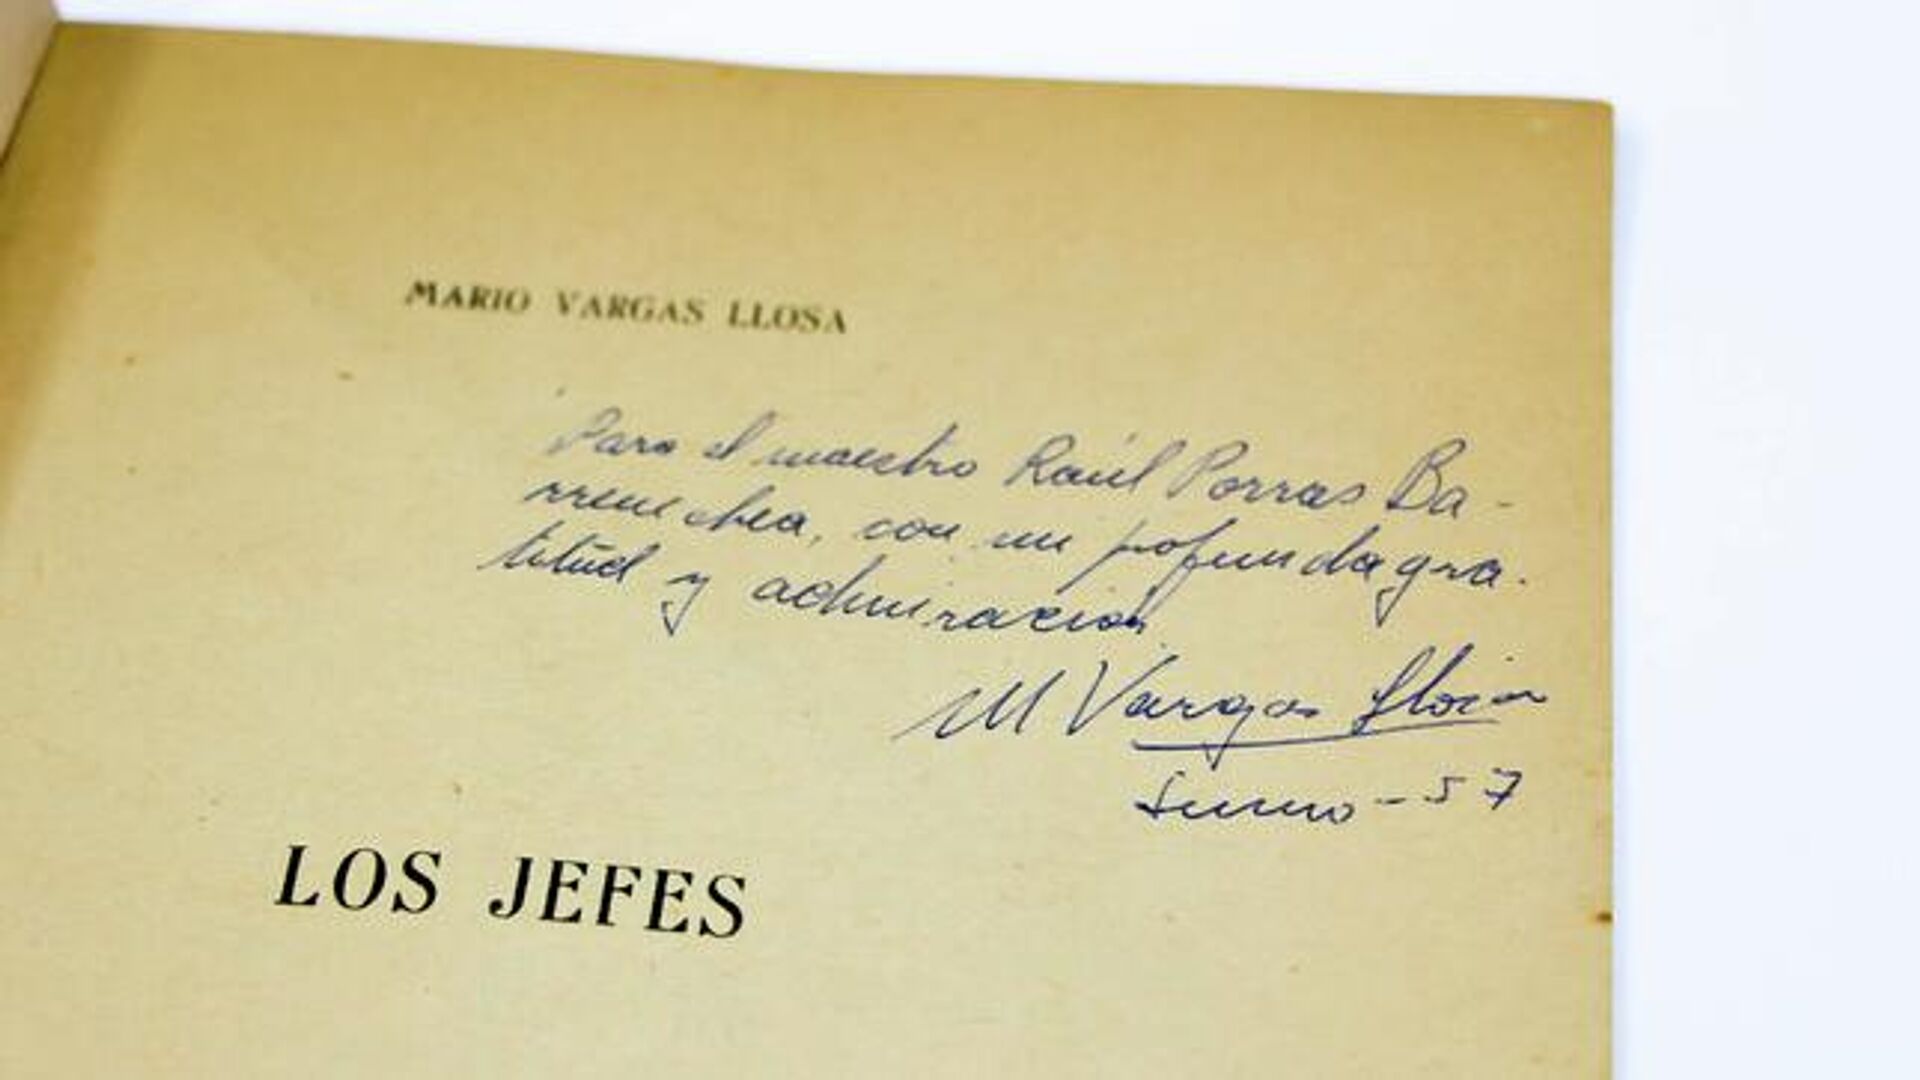 MARIO VARGAS LLOSA
Para el maestro Raúl Porras Ba-
rrenechea, con mi profunda gra-
titud y admiración
M Vargas Llosa
- 57
LOS JEFES